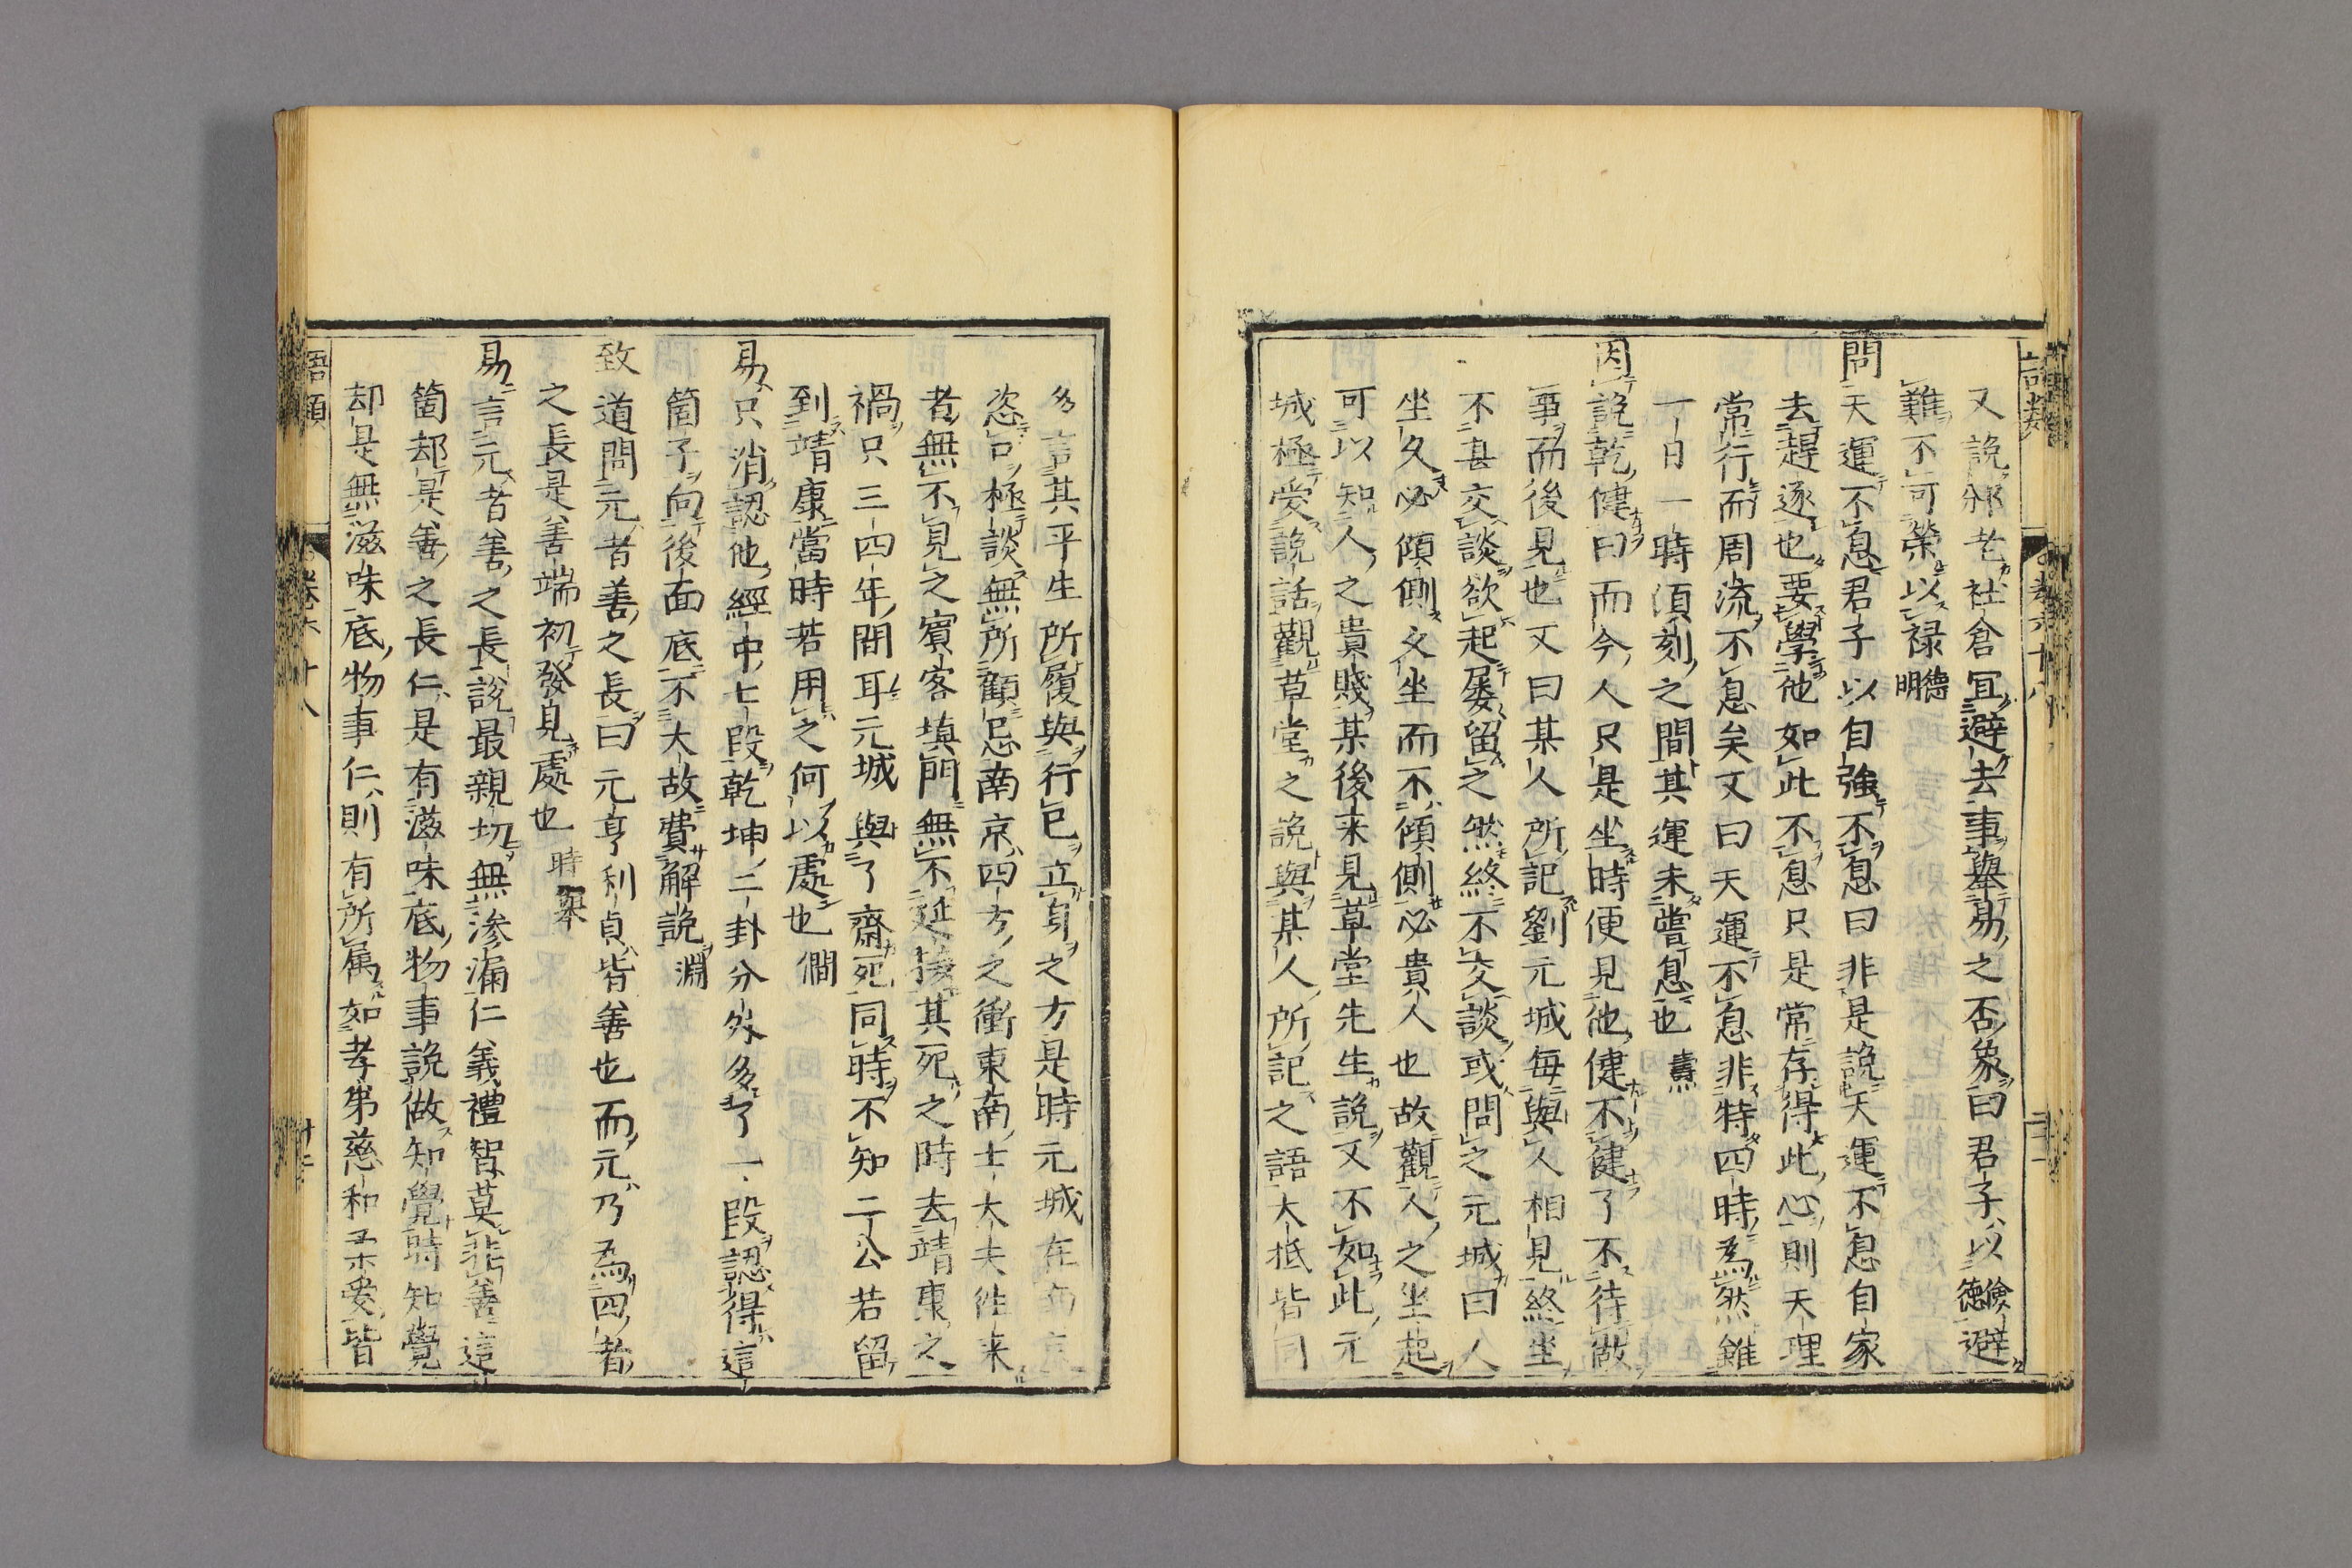 又說邵老社倉冝避去事舉易之否象曰君子以儉德避
難不可榮以禄 德明
問天運不息君子以自強不息曰非是說天運不息自家
去趕逐也要學他如此不息只是常存得此心則天理
常行而周流不息矣又曰天運不息非特四時為然雖
一日一時湏刻之間其運未嘗息也 燾
因說乾健曰而今人只是坐時便見他健不健了不待做
事而後見也又曰某人所記劉元城每與人相見終坐
不甚交談欲起屡留之然終不交談或問之元城曰人
坐久必傾側久坐而不傾側必貴人也故觀人之坐起
可以知人之貴賤某後来見草堂先生說又不如此元
城極愛說話觀草堂之說與某人所記之語大抵皆同
多言其平生所履與行已立身之方是時元城在南京
恣口極談無所顧忌南京四方之衝東南士大夫往来
者無不見之賓客填門無不延接其死之時去靖康之
禍只三四年間耳元城與了齋死同時不知二公若留
到靖康當時若用之何以處也 僩
易只消認他經中七段乾坤二卦分外多了一段認得這
箇子向後面底不大故費解說 淵
致道問元者善之長曰元亨利貞皆善也而元乃為四者
之長是善端初發見處也 時舉
易言元者善之長說最親切無滲漏仁義禮智莫非善這
箇却是善之長仁是有滋味底物事說做知覺時知覺
却是無滋味底物事仁則有所属如孝弟慈和柔愛皆
語類
卷六十八
廿二